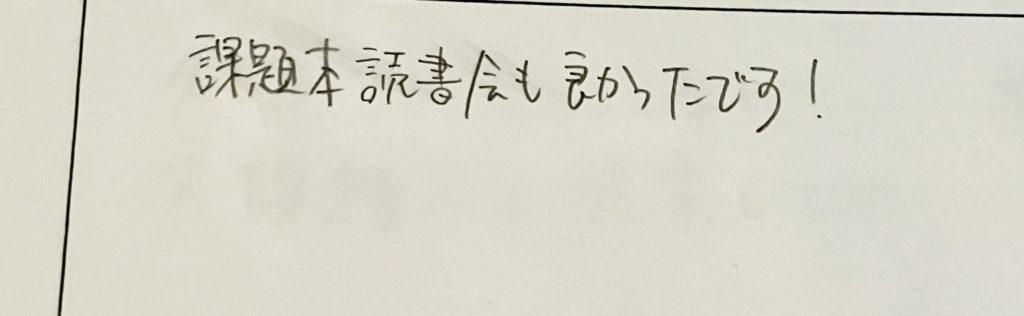 課題本読書会も良かったです！